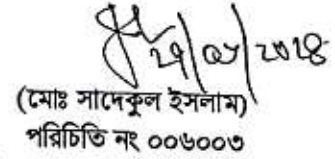 ২৭/০৫/২০১৪
(মোঃ সাদেকুল ইসলাম)
পরিচিতি নং ০০৬০০৩